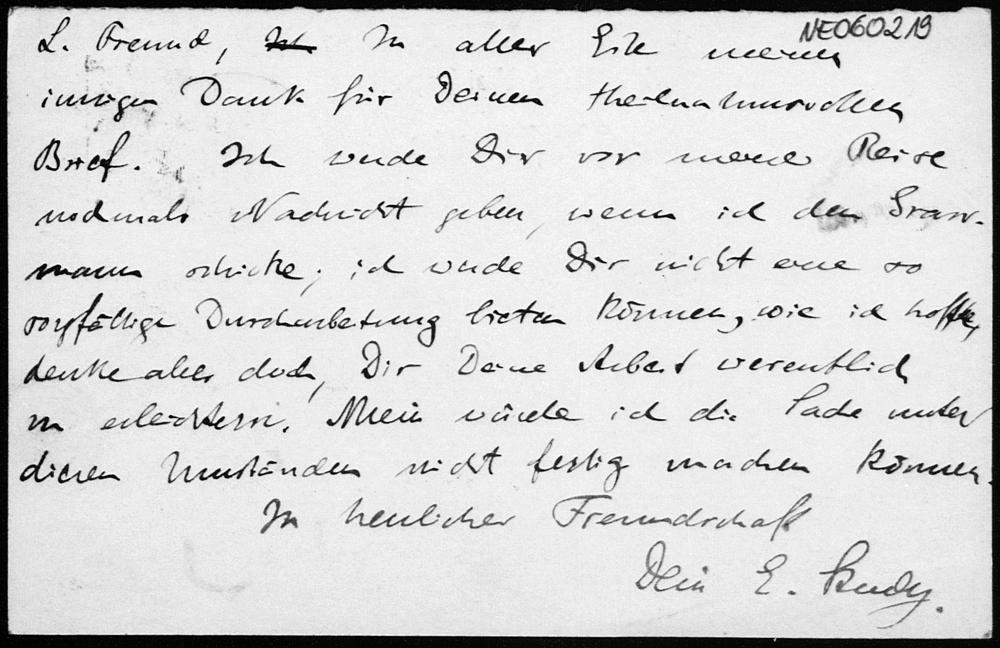 NE060219
L. Freund, Ich In aller Eile meinen
innigen Dank für Deinen theilnahmsvollen
Brief. Ich werde Dir vor meiner Reise
nochmals Nachricht geben, wenn ich den Grass-
mann schicke; ich werde Dir nicht eine so
sorgfältige Durcharbeitung bieten können, wie ich hoffte,
denke aber doch, Dir Deine Arbeit wesentlich
zu erleichtern. Allein würde ich die Sache unter
diesen Umständen nicht fertig machen können.
In herzlicher Freundschaft
Dein E. Study.